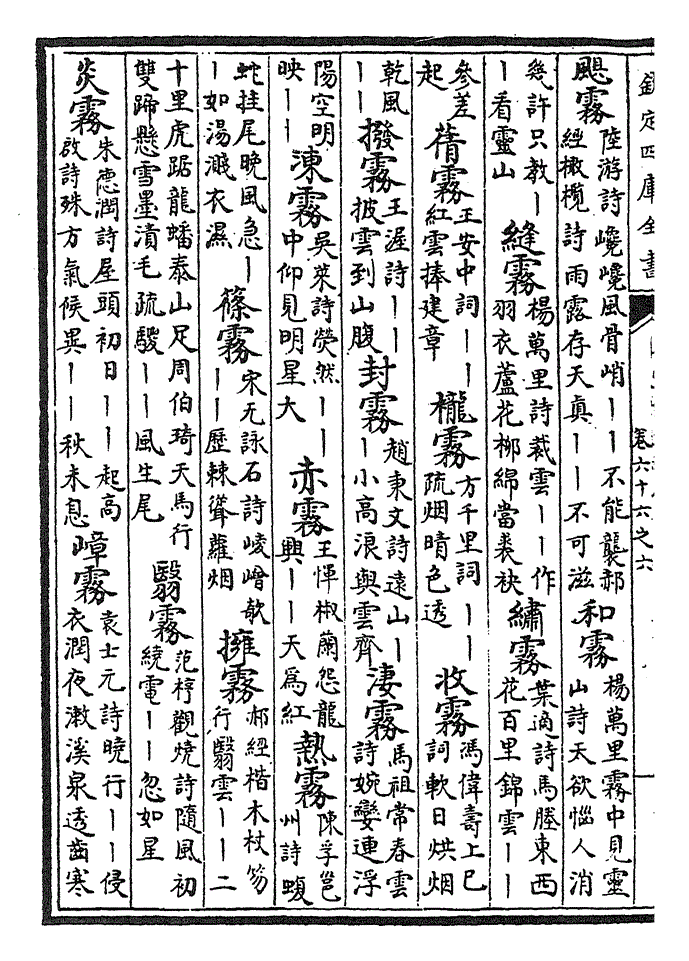 欽定四庫全書 卷六十六之六
颶霧 陸游詩巉巉風骨峭丨丨不能襲郝經橄欖詩雨露存天真丨丨不可滋 和霧 楊萬里霧中見靈山詩天欲惱人消
幾許只教丨丨看靈山 縫霧 楊萬里詩裁雲丨丨作羽衣蘆花柳綿當裘袂 繡霧 葉適詩馬塍東西花百里錦雲丨丨
參差起 蒨霧 王安中詞丨丨紅雲捧建章 櫳霧 方千里詞丨丨疏烟晴色透 收霧 馮偉壽上巳詞軟日烘烟
乾風丨丨 撥霧 王渥詩丨丨披雲到山腹 封霧 趙東文詩遠山丨丨小高浪與雲齊 淒霧 馬祖常春雲詩婉孌連浮
陽空明映丨丨 涷霧 吳萊詩熒然丨丨中仰見明星大 赤霧 王惲椒蘭怨龍興丨丨天為紅 熱霧 陳孚邕州詩蝮
蛇挂尾晚風急丨丨如湯濺衣濕 篠霧 宋无詠石詩崚嶒欹丨丨歷棘聳蘿烟 擁霧 郝經楷木杖笏行翳雲丨丨二
十里虎踞龍蟠泰山足周伯琦天馬行雙蹄懸雪墨漬毛疏騣丨丨風生尾 翳霧 范梈觀燒詩隨風初繞電丨丨忽如星
炎霧 朱德潤詩屋頭初日丨丨起高啟詩殊方氣候異丨丨秋未息 嶂霧 袁士元詩曉行丨丨侵衣潤夜漱溪泉透齒寒